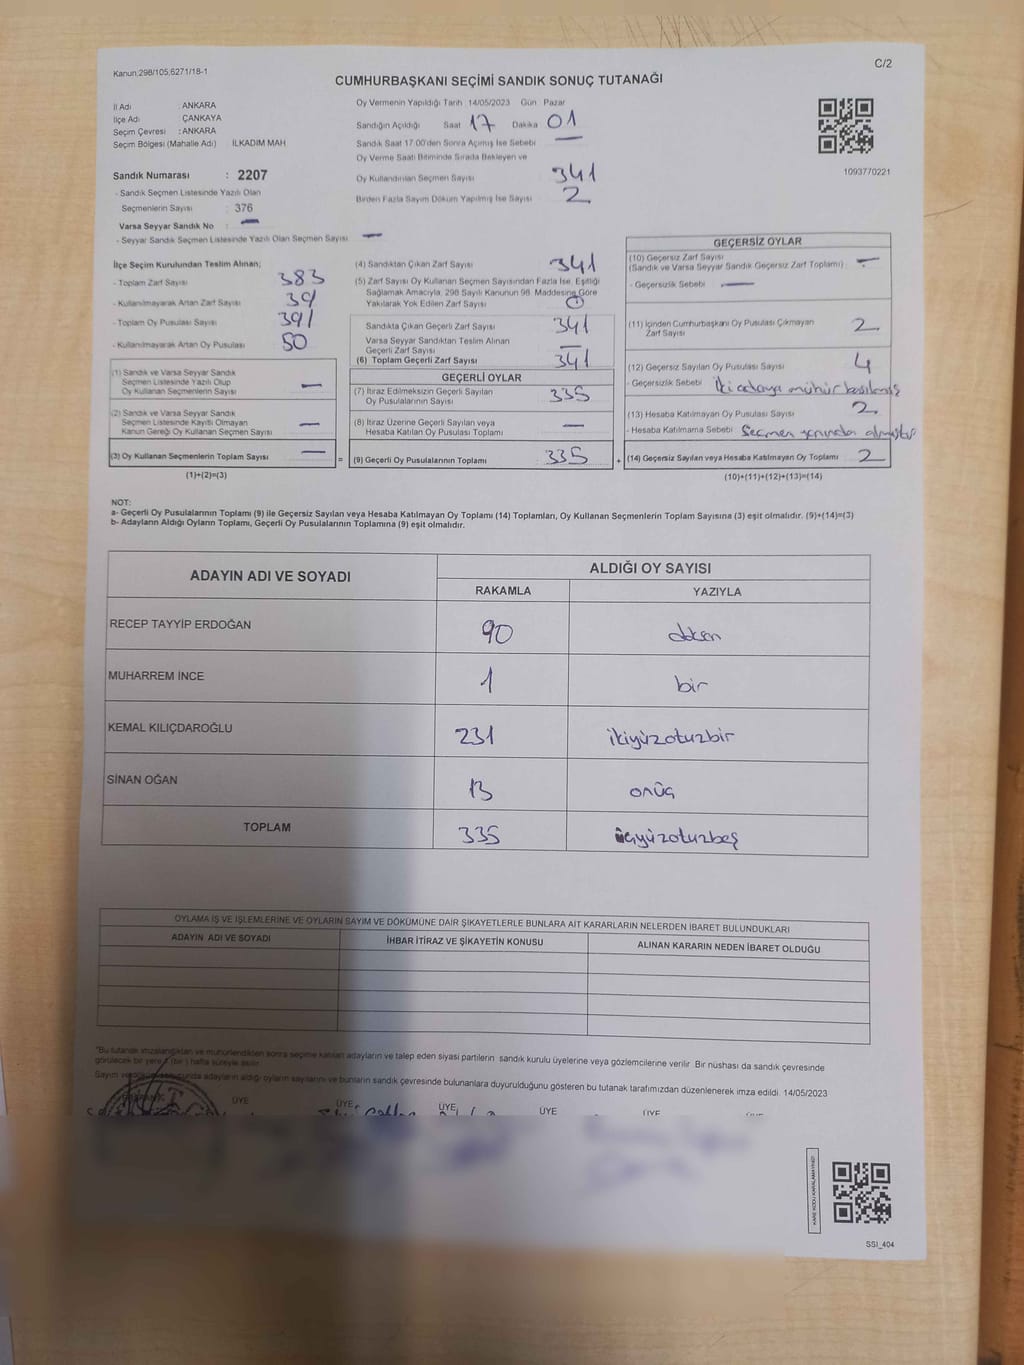 Kanun:298/105,6271/18-1
C/2
CUMHURBAŞKANI SEÇİMİ SANDIK SONUÇ TUTANAĞI
İl Adı : ANKARA
İlçe Adı : ÇANKAYA
Seçim Çevresi : ANKARA
Seçim Bölgesi (Mahalle Adı) : İLKADIM MAH
Sandık Numarası : 2207
- Sandık Seçmen Listesinde Yazılı Olan
Seçmenlerin Sayısı : 376
Varsa Seyyar Sandık No : —
- Seyyar Sandık Seçmen Listesinde Yazılı Olan Seçmen Sayısı —
Oy Vermenin Yapıldığı Tarih : 14/05/2023 Gün Pazar
Sandığın Açıldığı Saat 17 Dakika 01
Sandık Saat 17:00'den Sonra Açılmış İse Sebebi —
Oy Verme Saati Bitiminde Sırada Bekleyen ve
Oy Kullandırılan Seçmen Sayısı 341
Birden Fazla Sayım Döküm Yapılmış İse Sayısı 2
1093770221
İlçe Seçim Kurulundan Teslim Alınan;
- Toplam Zarf Sayısı 383
- Kullanılmayarak Artan Zarf Sayısı 39
- Toplam Oy Pusulası Sayısı 391
- Kullanılmayarak Artan Oy Pusulası 50
(1) Sandık ve Varsa Seyyar Sandık
Seçmen Listesinde Yazılı Olup
Oy Kullanan Seçmenlerin Sayısı —
(2) Sandık ve Varsa Seyyar Sandık
Seçmen Listesinde Kayıtlı Olmayan
Kanun Gereği Oy Kullanan Seçmen Sayısı —
(3) Oy Kullanan Seçmenlerin Toplam Sayısı — =
(1)+(2)=(3)
(4) Sandıktan Çıkan Zarf Sayısı 341
(5) Zarf Sayısı Oy Kullanan Seçmen Sayısından Fazla İse, Eşitliği
Sağlamak Amacıyla, 298 Sayılı Kanunun 98. Maddesine Göre
Yakılarak Yok Edilen Zarf Sayısı
Sandıkta Çıkan Geçerli Zarf Sayısı 341
Varsa Seyyar Sandıktan Teslim Alınan
Geçerli Zarf Sayısı —
(6) Toplam Geçerli Zarf Sayısı 341
GEÇERLİ OYLAR
(7) İtiraz Edilmeksizin Geçerli Sayılan
Oy Pusulalarının Sayısı 335
(8) İtiraz Üzerine Geçerli Sayılan veya
Hesaba Katılan Oy Pusulası Toplamı —
(9) Geçerli Oy Pusulalarının Toplamı 335 +
GEÇERSİZ OYLAR
(10) Geçersiz Zarf Sayısı
(Sandık ve Varsa Seyyar Sandık Geçersiz Zarf Toplamı) : —
- Geçersizlik Sebebi : —
(11) İçinden Cumhurbaşkanı Oy Pusulası Çıkmayan
Zarf Sayısı 2
(12) Geçersiz Sayılan Oy Pusulası Sayısı 4
- Geçersizlik Sebebi : İki adaya mühür basılmış
(13) Hesaba Katılmayan Oy Pusulası Sayısı 2
- Hesaba Katılmama Sebebi : Seçmen yanında almıştır
(14) Geçersiz Sayılan veya Hesaba Katılmayan Oy Toplamı 2
(10)+(11)+(12)+(13)=(14)
NOT:
a- Geçerli Oy Pusulalarının Toplamı (9) ile Geçersiz Sayılan veya Hesaba Katılmayan Oy Toplamı (14) Toplamları, Oy Kullanan Seçmenlerin Toplam Sayısına (3) eşit olmalıdır. (9)+(14)=(3)
b- Adayların Aldığı Oyların Toplamı, Geçerli Oy Pusulalarının Toplamına (9) eşit olmalıdır.
ADAYIN ADI VE SOYADI
ALDIĞI OY SAYISI
RAKAMLA YAZIYLA
RECEP TAYYİP ERDOĞAN 90
MUHARREM İNCE 1 bir
KEMAL KILIÇDAROĞLU 231 ikiyüzotuzbir
SİNAN OĞAN 13 onüç
TOPLAM 335 üçyüzotuzbeş
OYLAMA İŞ VE İŞLEMLERİNE VE OYLARIN SAYIM VE DÖKÜMÜNE DAİR ŞİKAYETLERLE BUNLARA AİT KARARLARIN NELERDEN İBARET BULUNDUKLARI
ADAYIN ADI VE SOYADI İHBAR İTİRAZ VE ŞİKAYETİN KONUSU ALINAN KARARIN NEDEN İBARET OLDUĞU
"Bu tutanak imzalandıktan ve mühürlendikten sonra seçime katılan adayların ve talep eden siyasi partilerin sandık kurulu üyelerine veya gözlemcilerine verilir. Bir nüshası da sandık çevresinde
görülecek bir yere 1 (bir) hafta süreyle asılır.
Sayım ve sonucunda adayların aldığı oyların sayılarını ve bunların sandık çevresinde bulunanlara duyurulduğunu gösteren bu tutanak tarafımızdan düzenlenerek imza edildi. 14/05/2023
ÜYE ÜYE ÜYE ÜYE ÜYE
SSI_404